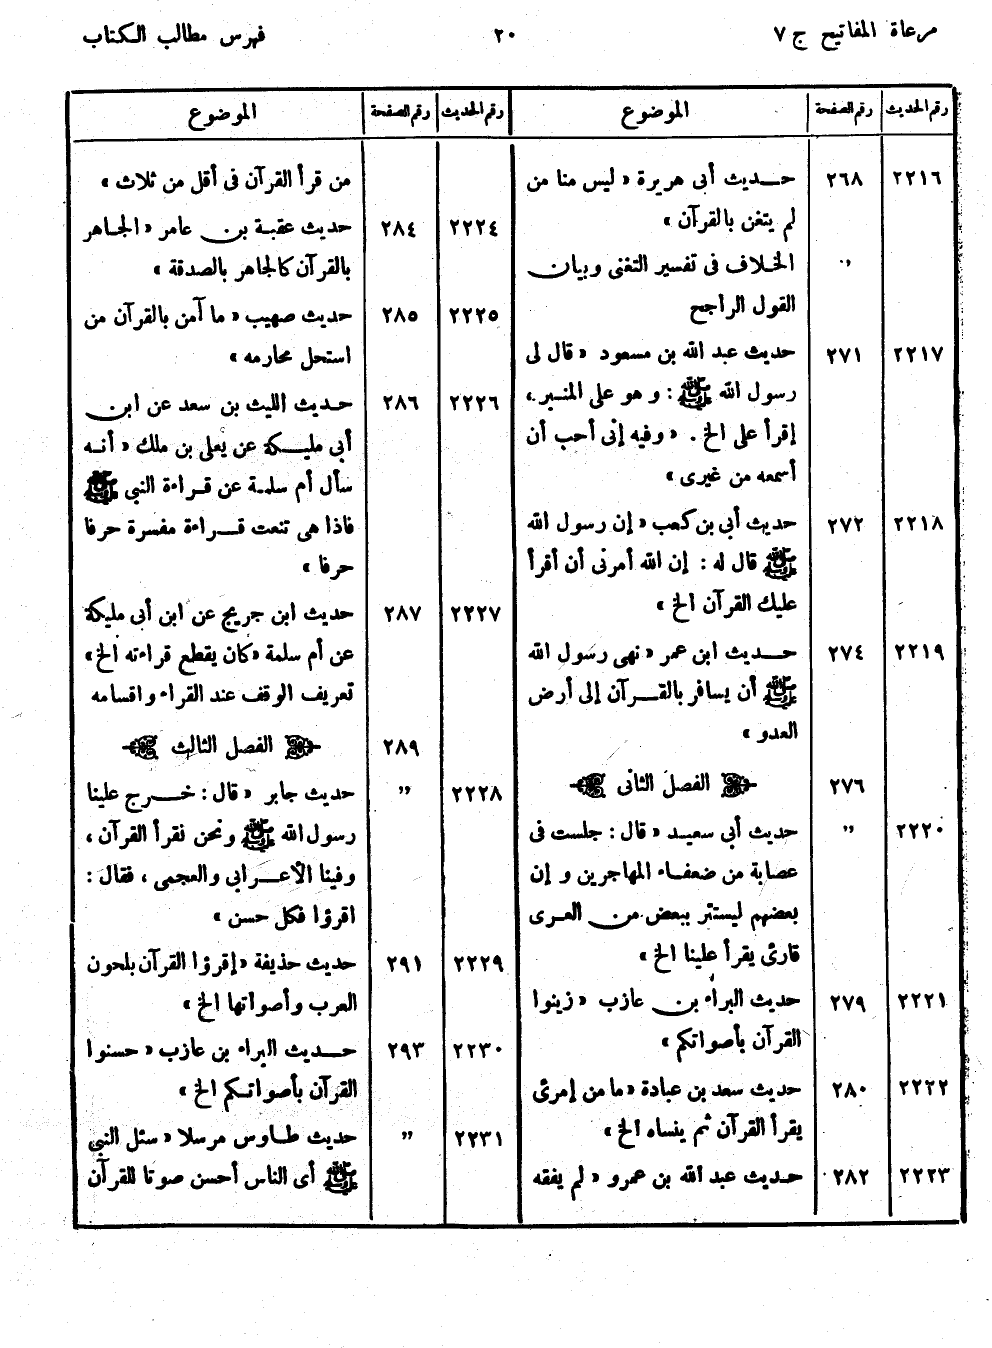 مرعاة المفاتيح ج ٧ ٢٠ فهرس مطالب الكتاب
رقم الحديث رقم الصفحة الموضوع
٢٢١٦ ٢٦٨ حديث أبى هريرة « ليس منا من
لم يتغن بالقرآن »
,, الخلاف فى تفسير التغنى وبيان
القول الراجح
٢٢١٧ ٢٧١ حديث عبد الله بن مسعود « قال لى
رسول الله ﷺ : و هو على المنبر ،
إقرأ على الخ . « وفيه إنى أحب أن
أسمعه من غيرى »
٢٢١٨ ٢٧٢ حديث أبي بن كعب « إن رسول الله
ﷺ قال له : إن الله أمرنى أن أقرأ
عليك القرآن الخ »
٢٢١٩ ٢٧٤ حديث ابن عمر « نهى رسول الله
ﷺ أن يسافر بالقرآن إلى أرض
العدو »
٢٧٦ الفصل الثانى
٢٢٢٠ ,, حديث أبي سعيد « قال : جلست فى
عصابة من ضعفاء المهاجرين و إن
بعضهم ليستتر ببعض من العرى
قارئ يقرأ علينا الخ »
٢٢٢١ ٢٧٩ حديث البراء بن عازب « زينوا
القرآن بأصواتكم »
٢٢٢٢ ٢٨٠ حديث سعد بن عبادة « ما من إمرئ
يقرأ القرآن ثم ينساه الخ »
٢٢٢٣ ٢٨٢ حديث عبد الله بن عمرو « لم يفقه
رقم الحديث رقم الصفحة الموضوع
من قرأ القرآن فى أقل من ثلاث »
٢٢٢٤ ٢٨٤ حديث عقبة بن عامر « الجاهر
بالقرآن كالجاهر بالصدقة »
٢٢٢٥ ٢٨٥ حديث صهيب « ما آمن بالقرآن من
استحل محارمه »
٢٢٢٦ ٢٨٦ حديث الليث بن سعد عن ابن
أبي مليكة عن يعلى بن ملك « أنه
سأل أم سلمة عن قراءة النبى ﷺ
فاذا هى تنعت قراءة مفسرة حرفا
حرفا »
٢٢٢٧ ٢٨٧ حديث ابن جريج عن ابن أبى مليكة
عن أم سلمة «كان يقطع قراءته الخ»
تعريف الوقف عند القراء واقسامه
٢٨٩ الفصل الثالث
٢٢٢٨ ,, حديث جابر « قال : خرج علينا
رسول الله ﷺ ونحن نقرأ القرآن ،
وفينا الأعرابى والعجمى ، فقال :
اقرؤا فكل حسن »
٢٢٢٩ ٢٩١ حديث حذيفة « إقرؤا القرآن بلحون
العرب وأصواتها الخ »
٢٢٣٠ ٢٩٣ حديث البراء بن عازب « حسنوا
القرآن بأصواتكم الخ »
٢٢٣١ ,, حديث طاوس مرسلا « سئل النبي
ﷺ أى الناس أحسن صوتا للقرآن